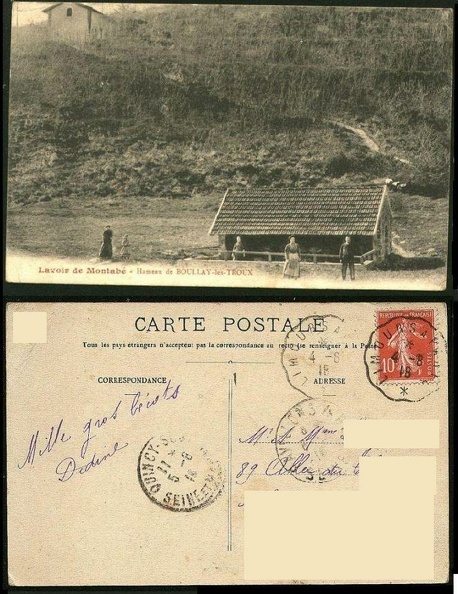 Lavoir de Montabé - Hameau de BOULLAY-les-TROUX
CARTE POSTALE
Tous les pays étrangers n'acceptent pas la correspondance au recto (se renseigner à la Poste)
CORRESPONDANCE
ADRESSE
LIMOURS A
4 -8
18
RÉPUBLIQUE FRANÇAISE
10
POSTES
LIMOURS A
4 -8
18
*
Mille gros bécots
Dédine
QUINCY-S
5 -8
18
SEINE-ET-M
Mr et Mme
89 Allée du